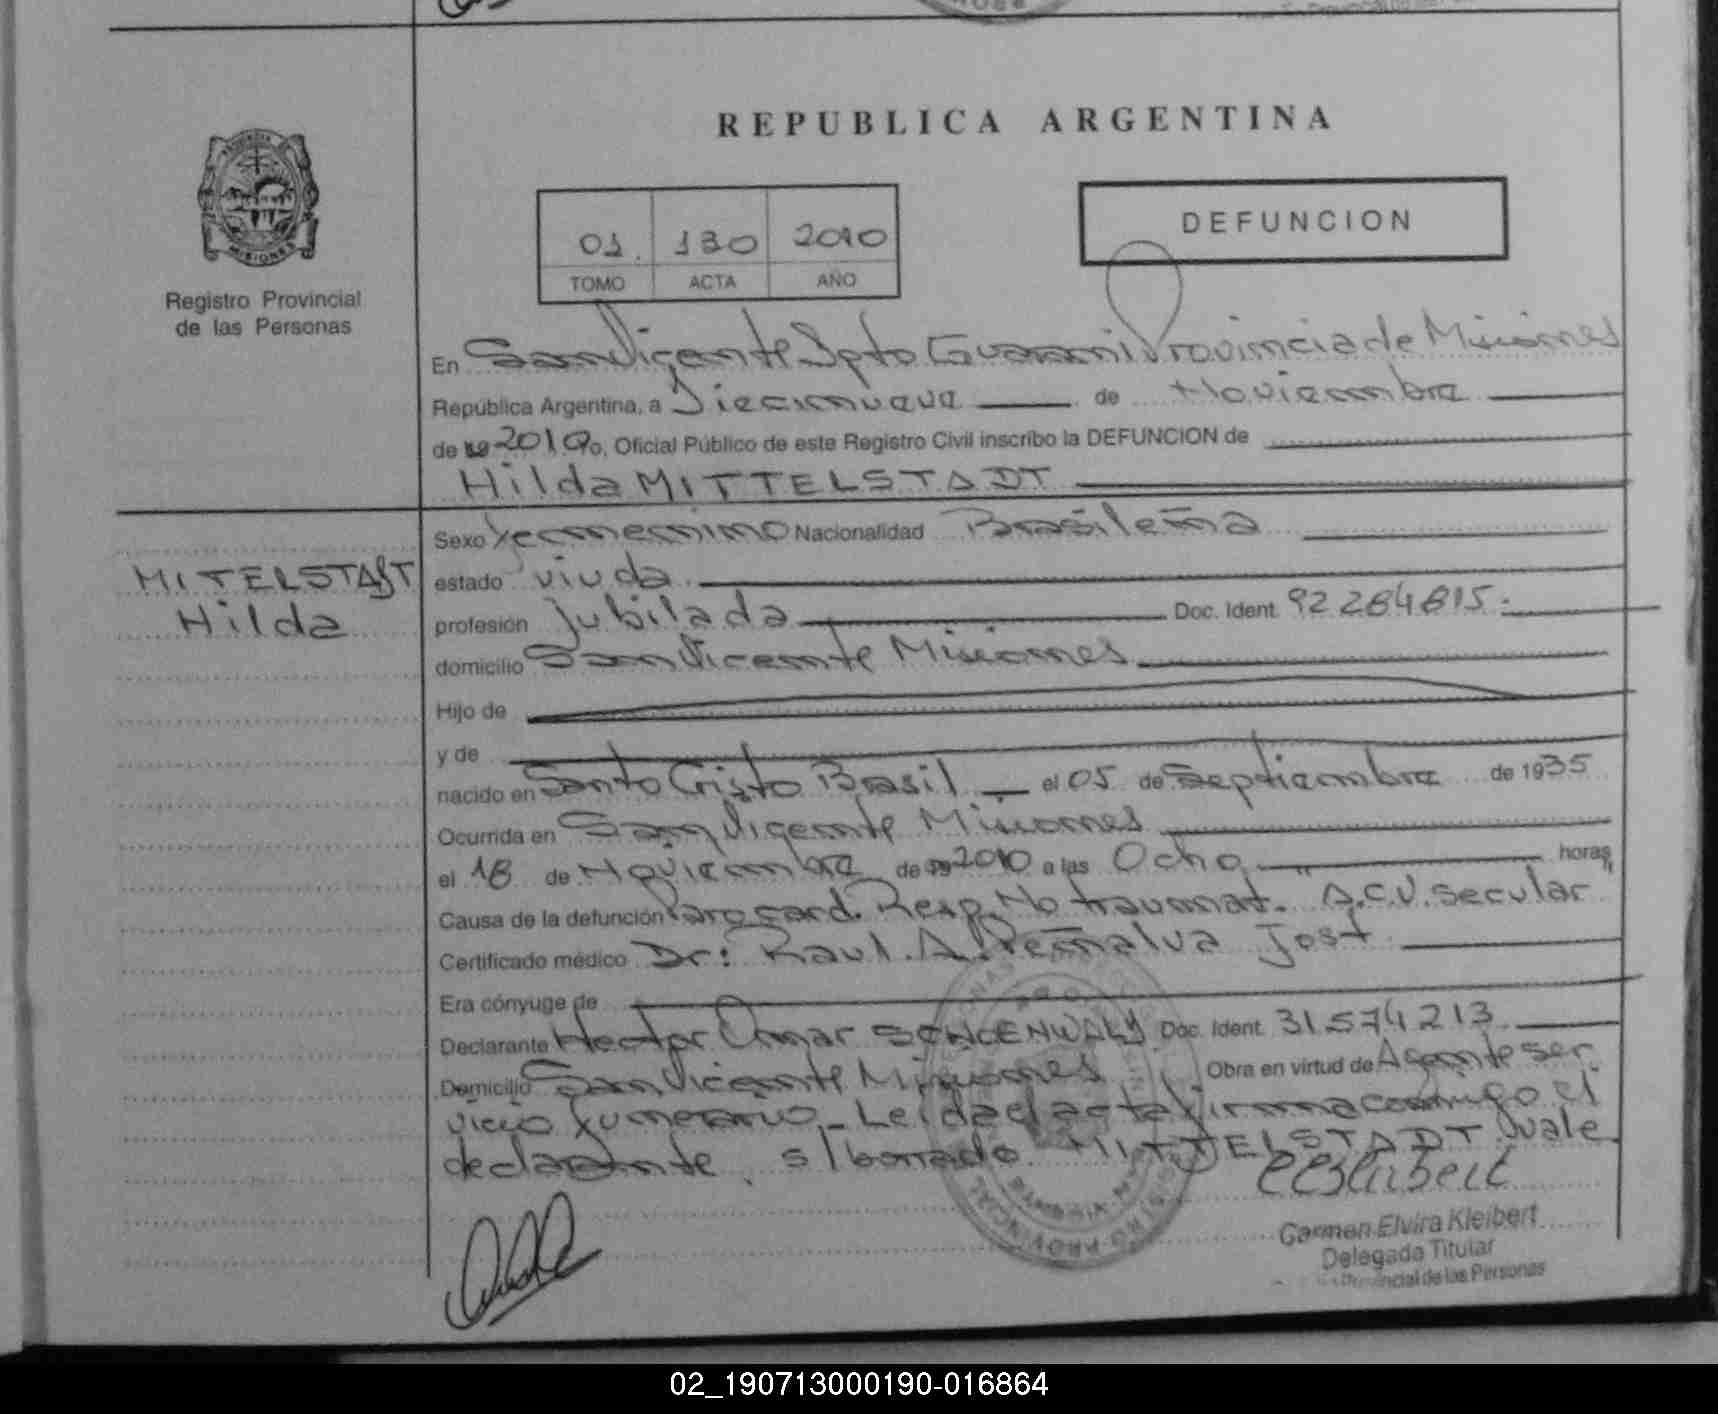 REPUBLICA ARGENTINA
PROVINCIA
MISIONES
Registro Provincial
de las Personas
01 130 2010
TOMO ACTA AÑO
DEFUNCION
En San Vicente Dpto Guarani Provincia de Misiones
República Argentina, a Diecinueve de Noviembre
de 19 2010 yo, Oficial Público de este Registro Civil inscribo la DEFUNCION de
Hilda MITTELSTADT
MITELSTADT
Hilda
Sexo femenino Nacionalidad Brasileña
estado viuda
profesión jubilada Doc. Ident. 92284815
domicilio San Vicente Misiones
Hijo de
y de
nacido en Santo Cristo Brasil el 05 de Septiembre de 1935
Ocurrida en San Vicente Misiones
el 18 de Noviembre de 19 2010 a las Ocho horas,
Causa de la defunción Paro card. Resp. No traumat. A.C.V. secular
Certificado médico Dr: Raul A. Peñalva Jost
Era cónyuge de
Declarante Hector Omar Doc. Ident. 31574213
Domicilio San Vicente Misiones Obra en virtud de Agente ser
vicio funerario_ Leida el acta firma conmigo el
declarante. s/borrado MITTELSTADT Vale
Carmen Elvira Kleibert
Delegada Titular
Provincial de las Personas
02_190713000190-016864